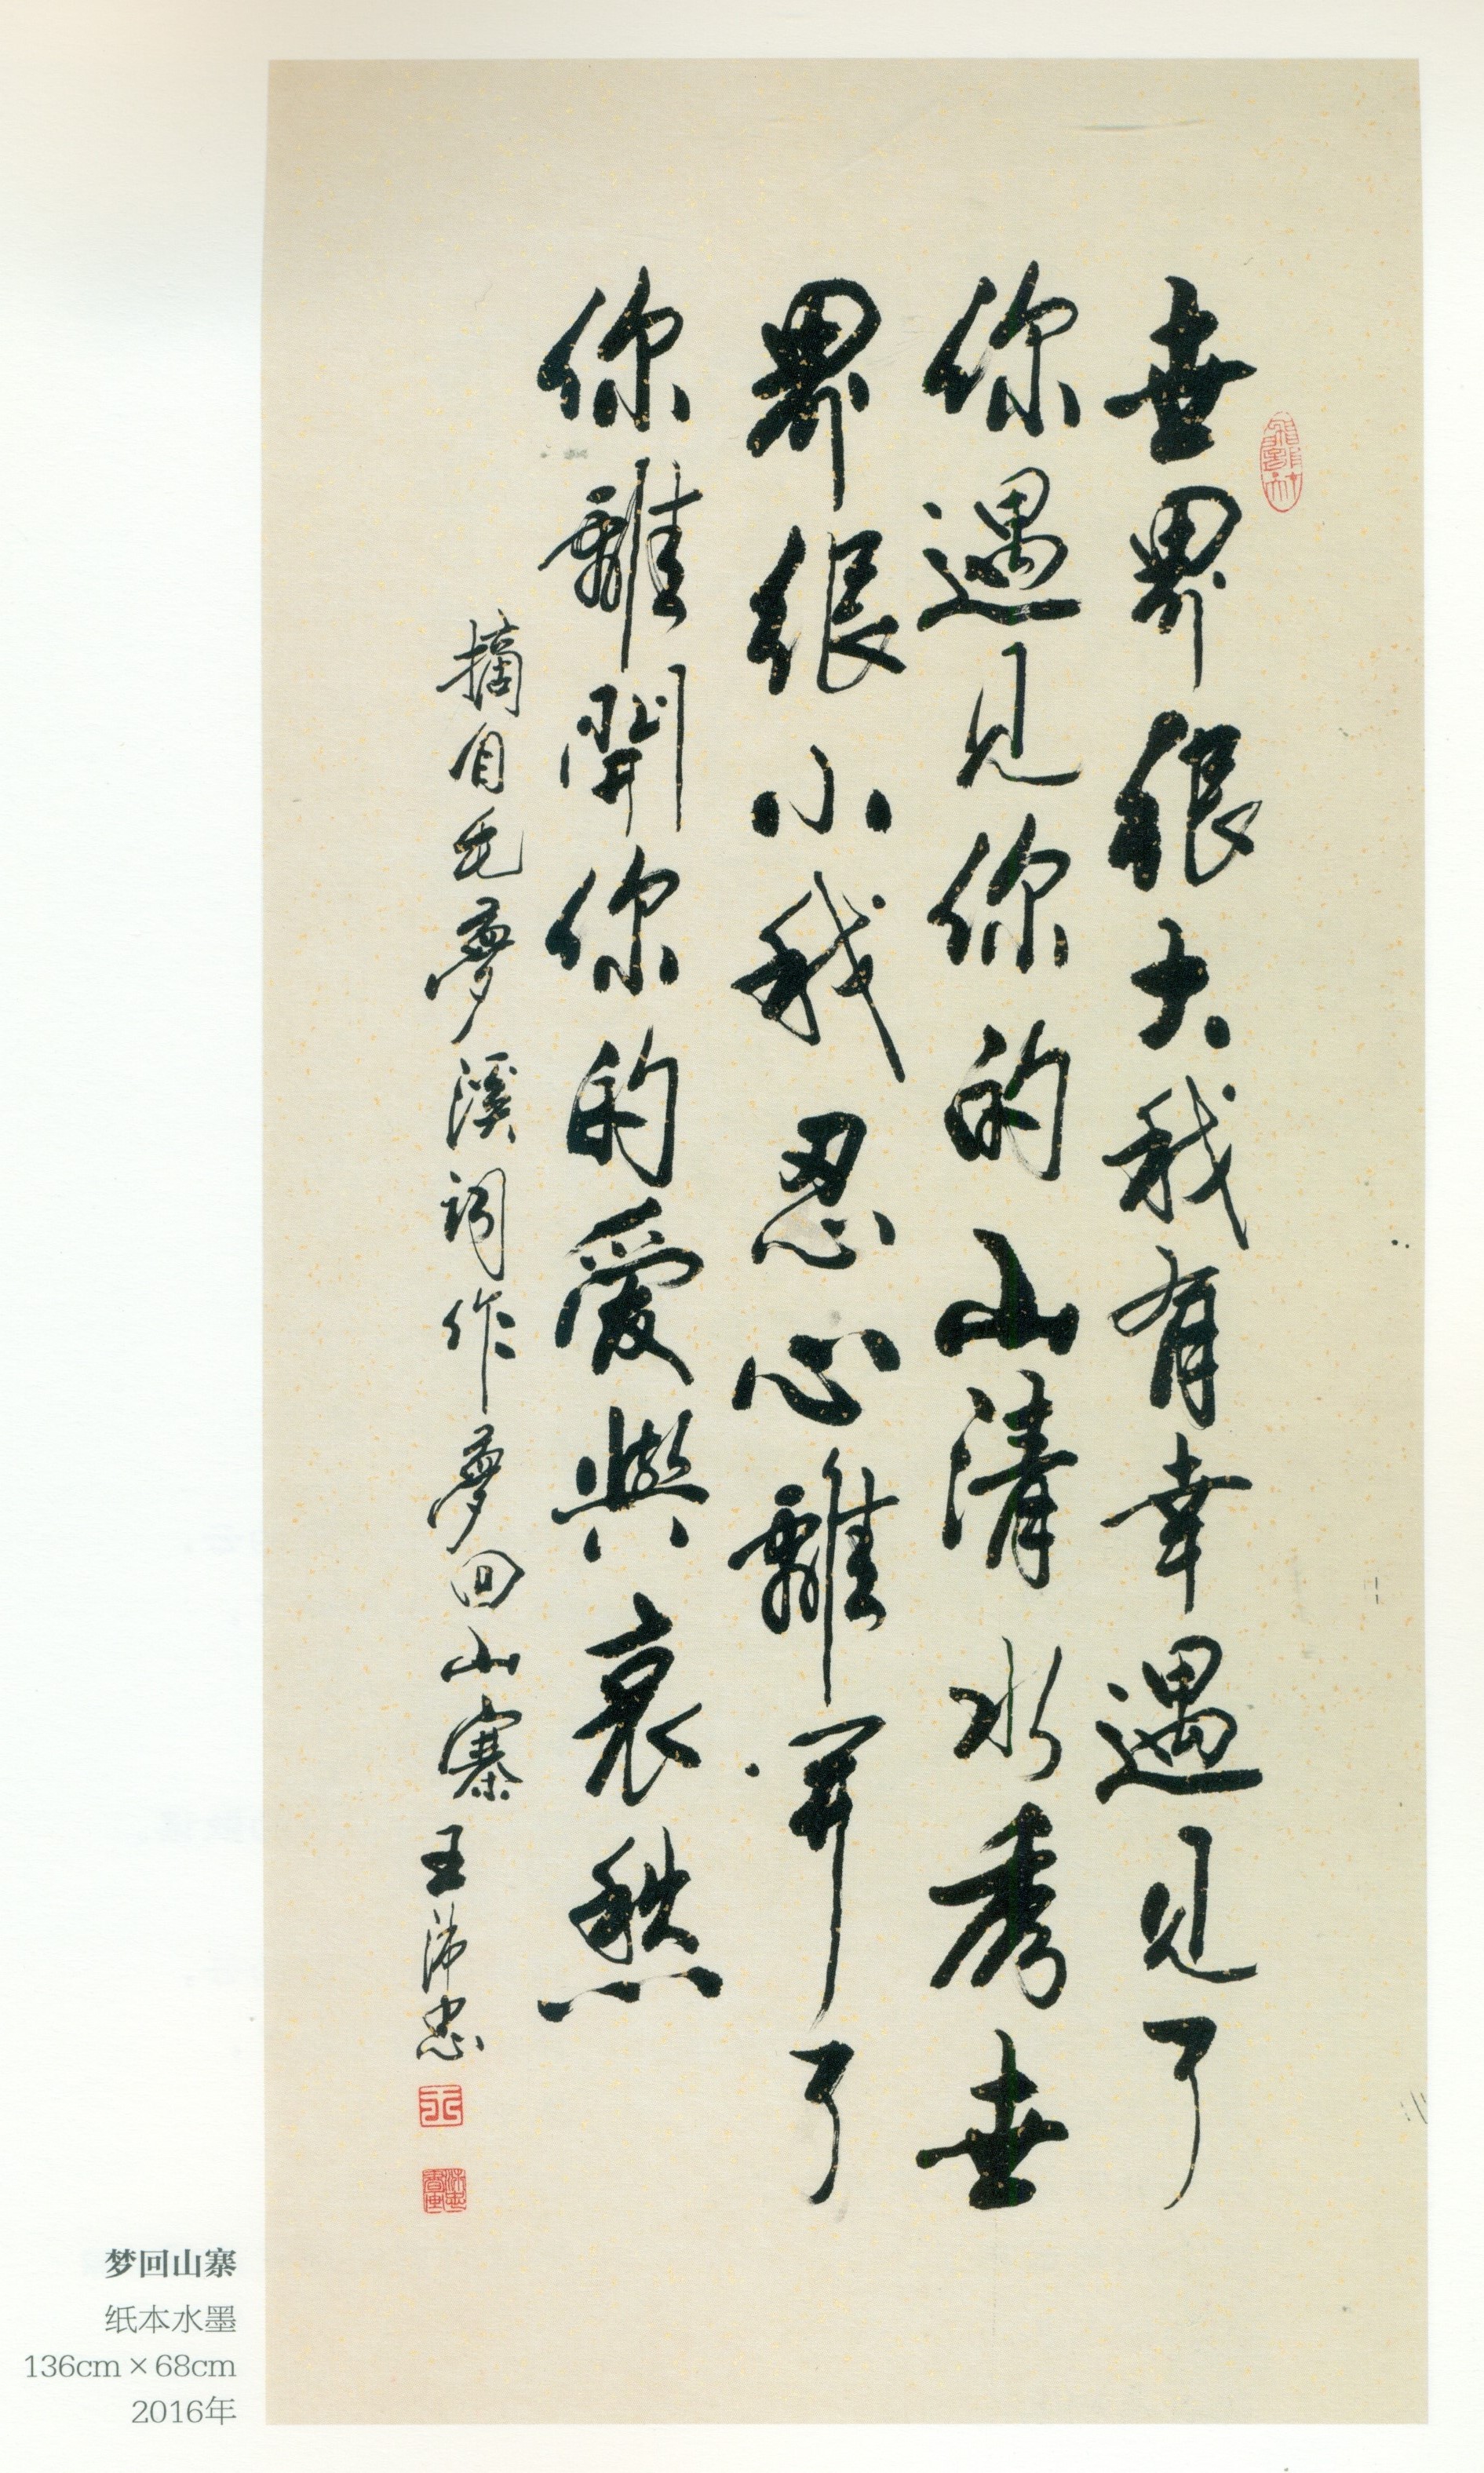 世界很大我有幸遇见了
你遇见你的山清水秀世
界很小我忍心離開了
你離開你的愛與哀愁
摘自毛夢溪詞作夢回山寨王沛忠
梦回山寨
纸本水墨
136cm×68cm
2016年